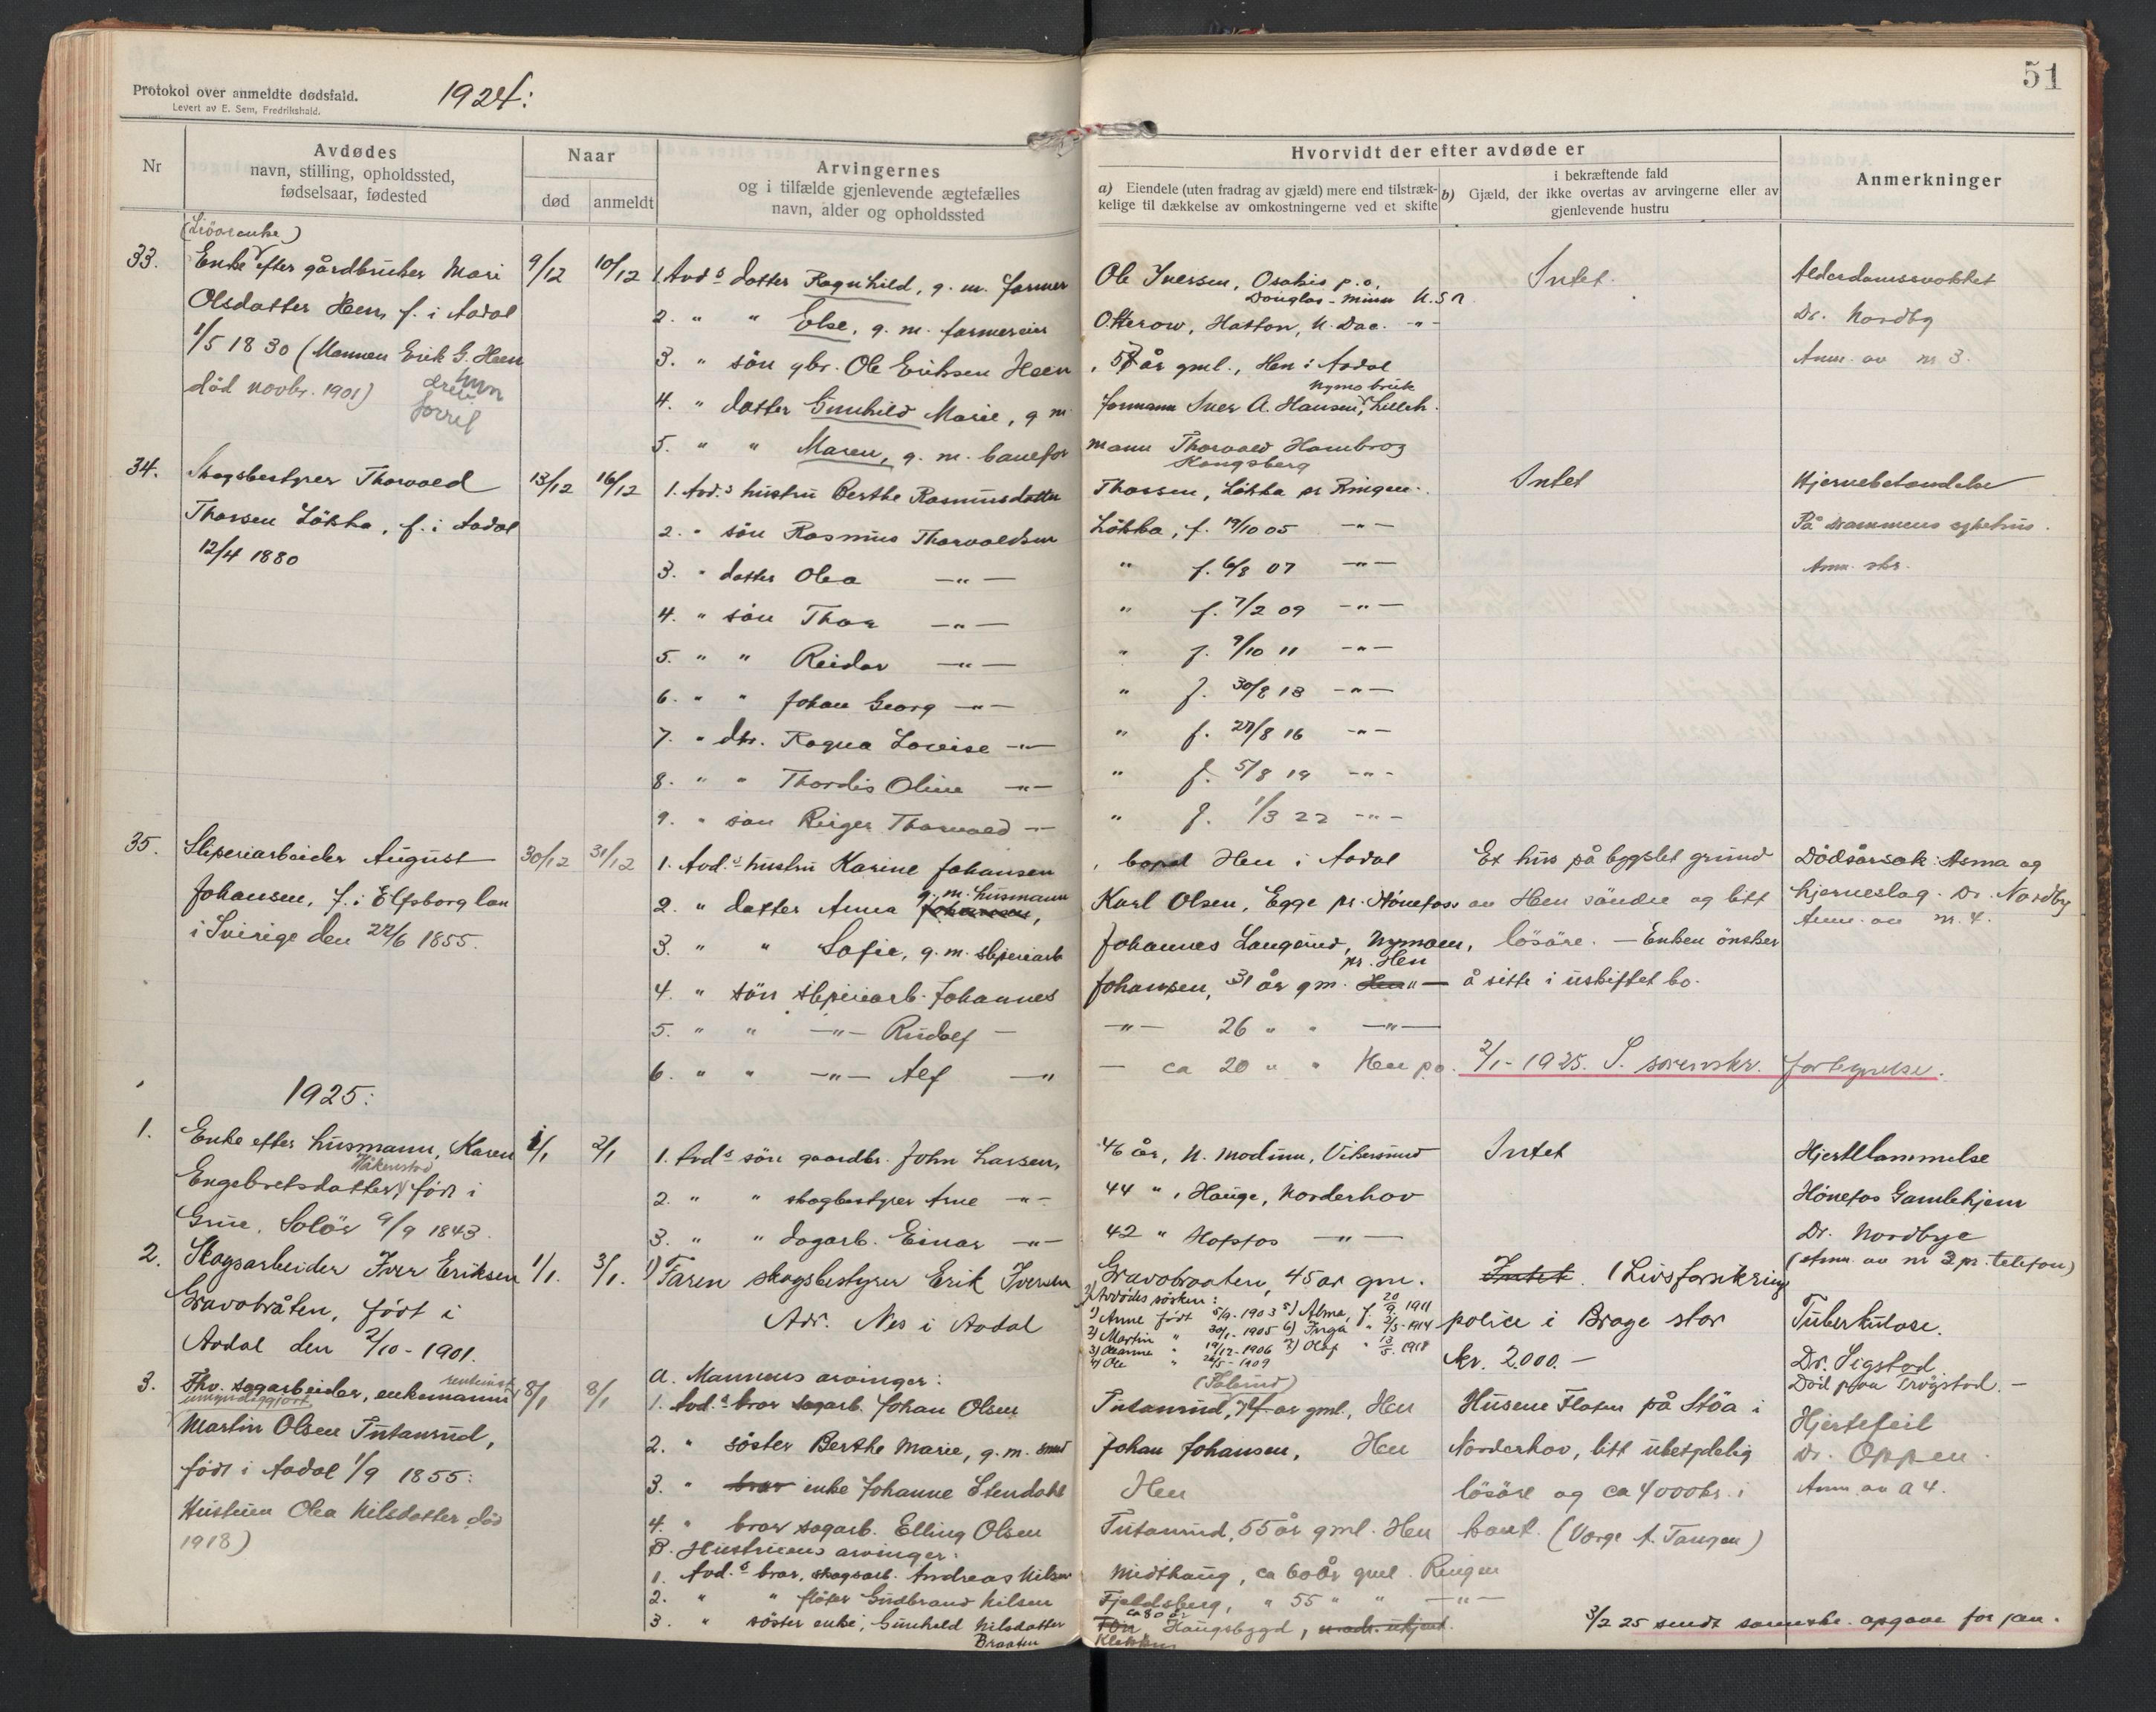 51
Protokol over anmeldte dødsfald.
Levert av E. Sem, Fredrikshald.
1924:
Nr
Avdødes
navn, stilling, opholdssted,
fødselsaar, fødested
Naar
død
anmeldt
Arvingernes
og i tilfælde gjenlevende ægtefælles
navn, alder og opholdssted
Hvorvidt der efter avdøde er
a) Eiendele (uten fradrag av gjæld) mere end tilstræk-
kelige til dækkelse av omkostningerne ved et skifte
i bekræftende fald
b) Gjæld, der ikke overtas av arvingerne eller av
gjenlevende hustru
Anmerkninger
33.
Enke efter gårdbruker Mari
Olsdatter Hen, f. i Aadal
1/5 1830 (Mannen Erik G. Heen
død novbr. 1901)
9/12
10/12
1. Avd.s datter Ragnhild, g. m. farmer Ole Iversen, Osakis p.o.
Douglas - Minn U.S.A.
2. " " Else, g. m. farmereier Otterow, Hatton, N. Dac. -"-
3. " sön gbr. Ole Eriksen Heen, 57 år gml., Hen i Aadal
4. " datter Gunhild Marie, g m formann Iver A. Hansen, Nymo bruk Lilleh.
5. " " Maren, g. m. banefor mann Thorvald Hambro
Kongsberg
Intet.
Alderdomssvakhet
Dr. Nordby
Anm. av nr 3.
34.
Skogsbestyrer Thorvald
Thorsen Lökka, f. i Aadal
12/4 1880
13/12
16/12
1. Avd.s hustru Berthe Rasmusdatter Thorsen, Lökka pr Ringen.
2. " sön Rasmus Thorvaldsen Lökka, f. 19/10 05 -"-
3. " datter Olea -"- " f. 6/8 07 -"-
4. " sön Thor -"- " f. 7/2 09 -"-
5. " " Reidar -"- " f. 9/10 11 -"-
6. " " Johan Georg -"- " f. 30/8 13 -"-
7. " dtr. Ragna Lovise -"- " f. 27/8 16 -"-
8. " " Thordis Oline -"- " f. 5/8 19 -"-
9. " sön Birger Thorvald -"- " f. 1/3 22 -"-
Intet
Hjernebetændelse
På Drammens sykehus.
Anm. skr.
35.
Sliperiarbeider August
Johansen, f. i Elfsborg lan
i Sverige den 27/6 1855.
30/12
31/12
1. Avd.s hustru Karine Johansen, bopel Hen i Aadal
2. " datter Anna Johansen, g. m. husmann Karl Olsen, Egge pr. Hönefos
3. " " Sofie, g. m. sliperiarb Johannes Langerud, Nymoen,
pr. Hen
4. " sön sliperiarb. Johannes Johansen, 31 år gm. Hen -"-
5. " " -"- Rudolf - -"- 26 " " -"-
6. " " -"- Alf -"- - ca 20 " " Hen po.
Et hus på bygslet grund
av Hen söndre og litt
lösöre. - Enken önsker
å sitte i uskiftet bo.
Dödsårsak: Asma og
hjerneslag. Dr. Nordby
Anm. av nr. 4.
2/1 - 1925. S. sorenskr. fortegnelse.
1925:
1.
Enke efter husmann, Karen
Engebretsdatter Håkenstad födt i
Grue, Solör 9/9 1843.
1/1
2/1
1. Avd.s sön gaardbr. John Larsen, 46 år, N. Modum, Vikersund
2. " " skogbestyrer Arne -"- 44 ", Hauge, Norderhov
3. " " dagarb. Einar -"- 42 " Hofsfos -"-
Intet
Hjertelammelse
Hönefos Gamlehjem
Dr. Nordbye
(Anm. av nr 3 pr. telefon)
2.
Skogsarbeider Iver Eriksen
Gravobråten, födt i
Aadal den 2/10 - 1901.
1/1.
3/1.
1) Faren skogsbestyrer Erik Iversen Gravobraaten, 45 år gm.
Adr. Nes i Aadal
2) Avdödes sösken:
1) Anne födt 5/9 - 1903 5) Alma, f. 20/9. 1911
2) Martin " 30/1 - 1905 6) Inga " 2/5 - 1914
3) Oleanne " 19/12 - 1906 7) Olaf " 13/5. 1918
4) Ole " 26/5 - 1909
Intet. 1 Livsforsikring
police i Brage stor
kr. 2.000. -
Tuberkulose.
Dr. Sigstad
Död paa Trögstad. -
3.
Fhv. sagarbeider, enkemann
umyndiggjort
Martin Olsen Tutanrud,
födt i Aadal 1/9 1855:
Hustruen Olea Nilsdatter död
1918)
8/1
8/1
A. Mannens arvinger:
1. Avd.s bror sagarb. Johan Olsen Tutanrud, år gml., Hen
2. " söster Berthe Marie, g. m. smed Johan Johansen, Hen
3. " bror enke Johanne Stendahl Hen
4. " bror sagarb. Elling Olsen Tutanrud, 55 år gml. Hen
B. Hustruens arvinger:
1. Avd.s bror, skogsarb. Andreas Nilsen Midthaug, ca 60 år gml. Ringen
2. " " fløter Gudbrand Nilsen Fjeldsberg, " 55 " " -"-
3. " söster enke, Gunhild Nilsdatter Braaten ca 80 år Haugsbygd,
Klekken
Husene Flaten på Stöa i
Norderhov, litt ubetydelig
lösöre og ca 4000 kr. i
bank. (Verge A. Tangen)
Hjertefeil
Dr. Oppen.
Anm. av A 4.
3/2 25 sendt sorenskr. opgave for jan.